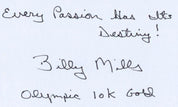 Every Passion Has Its
Destiny!
Billy Mills
Olympic 10K Gold